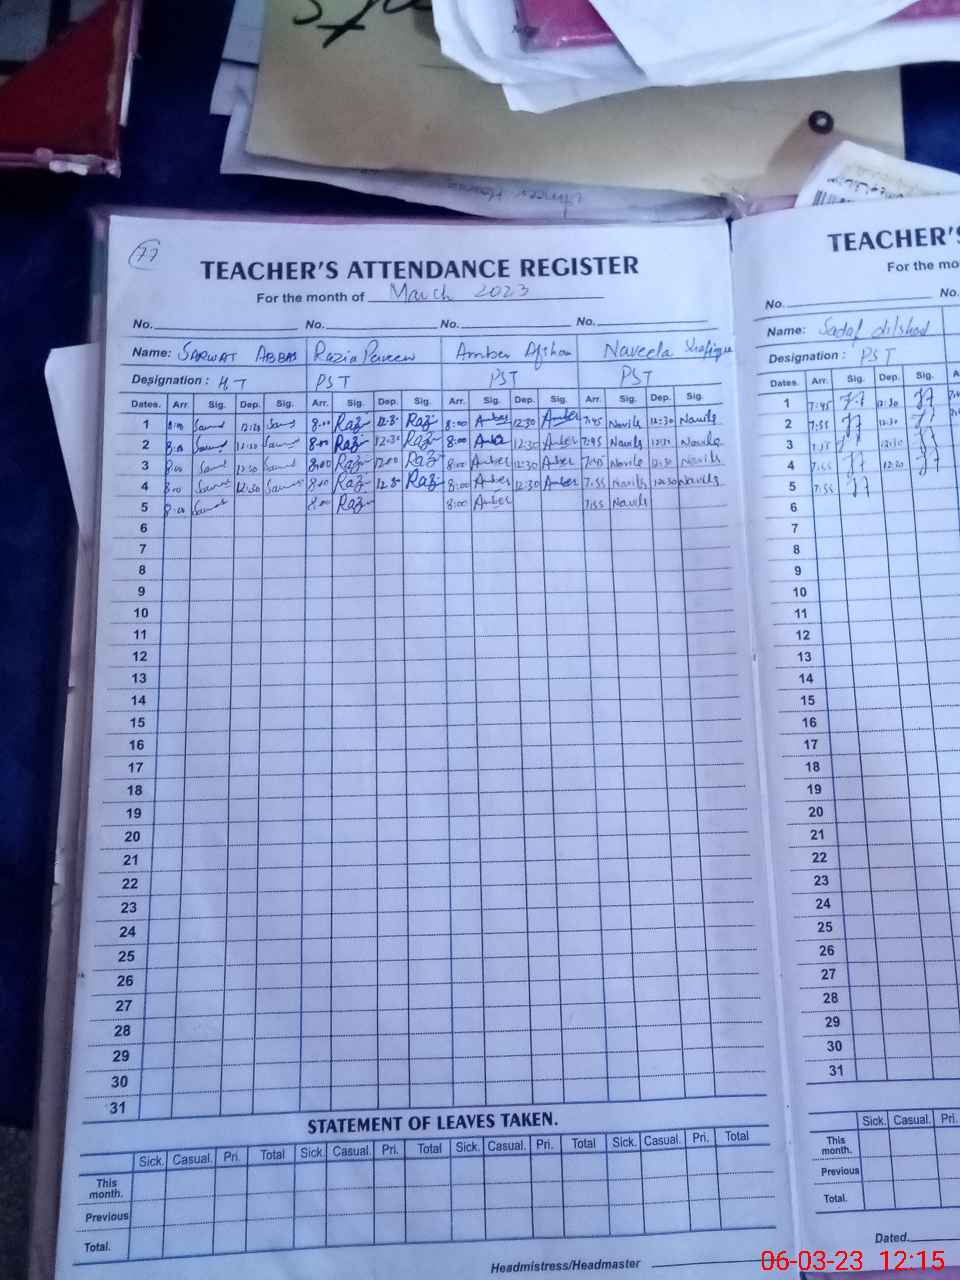 77
TEACHER'S ATTENDANCE REGISTER
For the month of March 2023
No. No. No. No.
Name: SARWAT ABBAS Razia Perveen Amber Afshan Naveela Shafique
Designation: HT PST PST PST
Dates. Arr. Sig. Dep. Sig. Arr. Sig. Dep. Sig. Arr. Sig. Dep. Sig. Arr. Sig. Dep. Sig.
1 8:00 12:30 8:00 Raz 12:30 Raz 8:00 Amber 12:30 Amber 7:45 Navila 12:30 Navila
2 8:00 12:30 8:00 Raz 12:30 Raz 8:00 Amber 12:30 Amber 7:45 Navila 12:30 Navila
3 8:00 12:30 8:00 Raz 12:00 Raz 8:00 Amber 12:30 Amber 7:45 Navila 12:30 Navila
4 8:00 12:30 8:00 Raz 12:30 Raz 8:00 Amber 12:30 Amber 7:55 Navila 12:30 Navila
5 8:00 8:00 Raz 8:00 Amber 7:55 Navila
6
7
8
9
10
11
12
13
14
15
16
17
18
19
20
21
22
23
24
25
26
27
28
29
30
31
STATEMENT OF LEAVES TAKEN.
Sick. Casual. Pri. Total Sick. Casual. Pri. Total Sick. Casual. Pri. Total Sick. Casual. Pri. Total
This month.
Previous
Total.
Headmistress/Headmaster
TEACHER'S
For the mo
No. No.
Name: Sadaf dilshad
Designation: PST
Dates. Arr. Sig. Dep. Sig. A
1 7:45 12:30
2 7:55 12:30
3 7:55 12:30
4 7:55 12:30
5 7:55
6
7
8
9
10
11
12
13
14
15
16
17
18
19
20
21
22
23
24
25
26
27
28
29
30
31
Sick. Casual. Pri.
This month.
Previous
Total.
Dated.
06-03-23 12:15